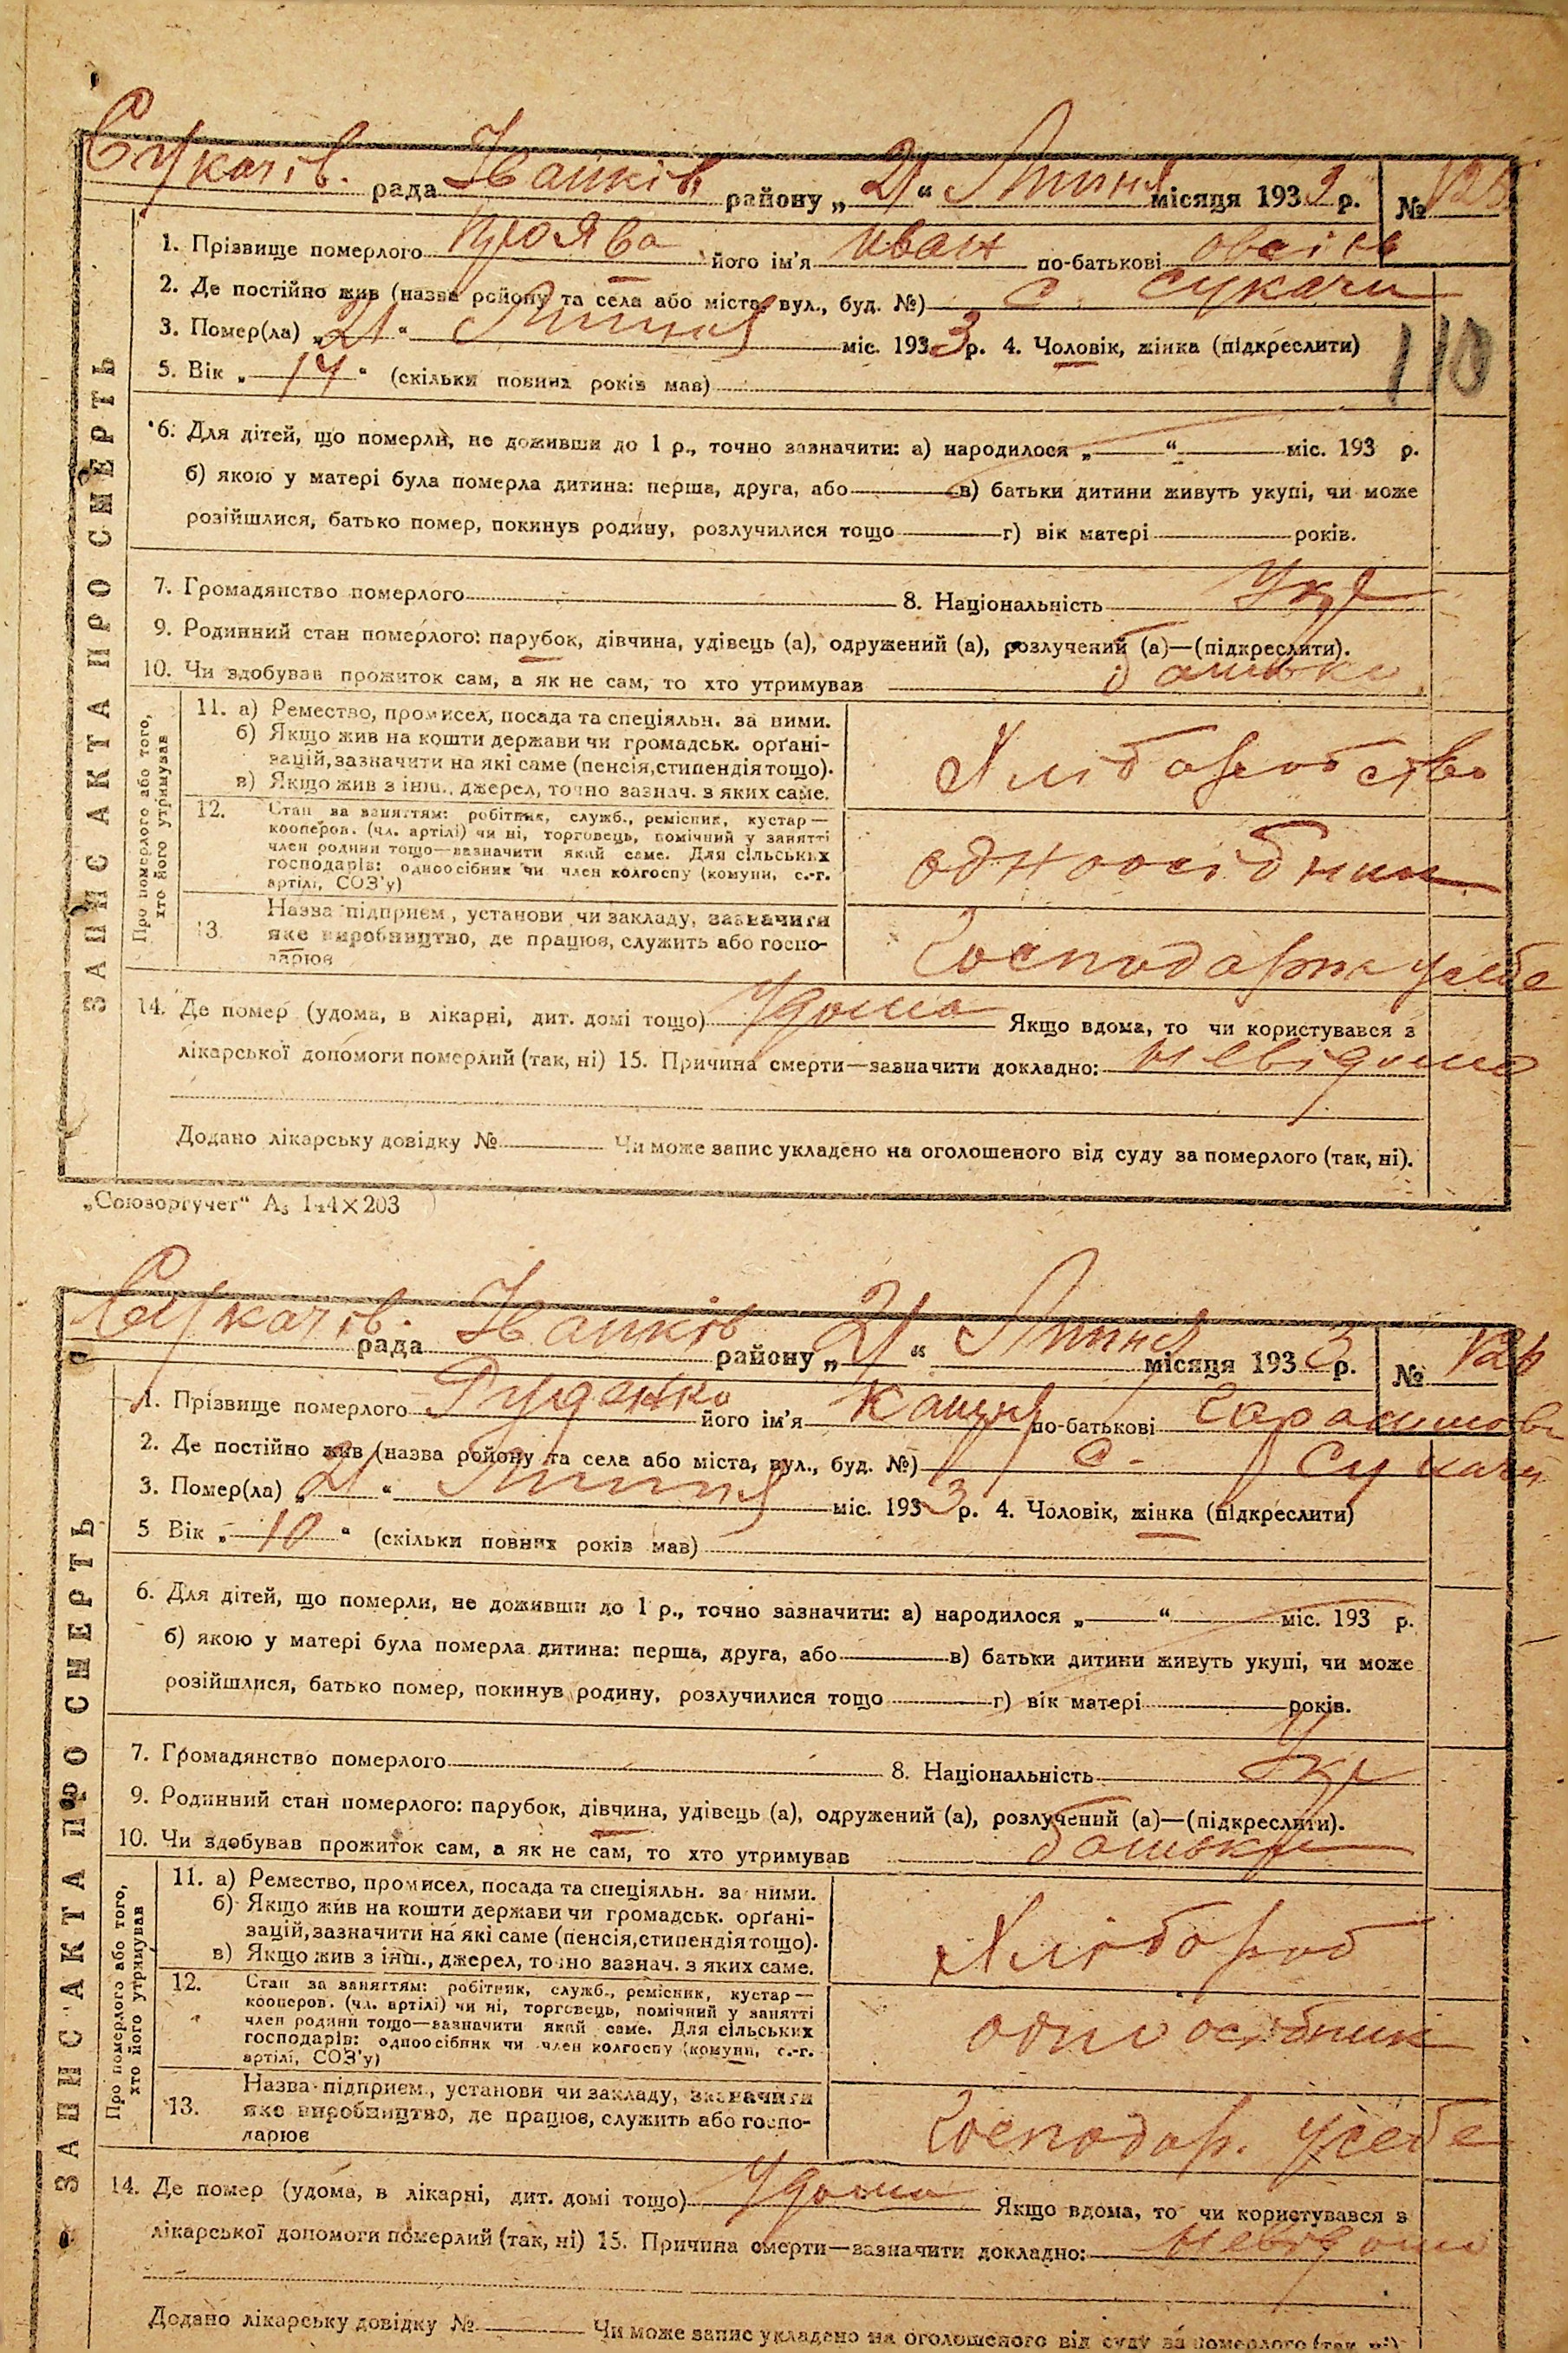 Сукачів. рада Іванків району „21“ Липня місяця 1933 р. № 125
110
ЗАПИС АКТА ПРО СМЕРТЬ
1. Прізвище померлого його ім'я Иван по-батькові
2. Де постійно жив (назва району та села або міста, вул., буд. №) с. Сукачи
3. Помер(ла) „21“ Липня міс. 1933 р. 4. Чоловік, жінка (підкреслити)
5. Вік „14“ (скільки повних років мав)
6. Для дітей, що померли, не доживши до 1 р., точно зазначити: а) народилося „ “ міс. 193 р.
б) якою у матері була померла дитина: перша, друга, або в) батьки дитини живуть укупі, чи може
розійшлися, батько помер, покинув родину, розлучилися тощо г) вік матері років.
7. Громадянство померлого 8. Національність Укр
9. Родинний стан померлого: парубок, дівчина, удівець (а), одружений (а), розлучений (а)—(підкреслити).
10. Чи здобував прожиток сам, а як не сам, то хто утримував батьки
Про померлого або того, хто його утримував
11. а) Ремество, промисел, посада та спеціяльн. за ними.
б) Якщо жив на кошти держави чи громадськ. орґані-
зацій, зазначити на які саме (пенсія, стипендія тощо).
в) Якщо жив з інш., джерел, точно зазнач. з яких саме.
Хліборобство
12. Стан за заняттям: робітник, служб., ремісник, кустар—
кооперов. (чл. артілі) чи ні, торговець, помічний у занятті
член родини тощо—зазначити який саме. Для сільських
господарів: одноосібник чи член колгоспу (комуни, с.-г.
артілі, СОЗ'у)
одноосібник
13. Назва підприєм., установи чи закладу, зазначити
яке виробництво, де працює, служить або госпо-
дарює
Господарює у себе
14. Де помер (удома, в лікарні, дит. домі тощо) Удома Якщо вдома, то чи користувався з
лікарської допомоги померлий (так, ні) 15. Причина смерти—зазначити докладно: невідома
Додано лікарську довідку № Чи може запис укладено на оголошеного від суду за померлого (так, ні).
„Союзоргучет“ А₅ 144×203
Сукачів. рада Іванків району „21“ Липня місяця 1933 р. № 126
ЗАПИС АКТА ПРО СМЕРТЬ
1. Прізвище померлого Руденко його ім'я Катря по-батькові
2. Де постійно жив (назва району та села або міста, вул., буд. №) с. Сукачи
3. Помер(ла) „21“ Липня міс. 1933 р. 4. Чоловік, жінка (підкреслити)
5 Вік „10“ (скільки повних років мав)
6. Для дітей, що померли, не доживши до 1 р., точно зазначити: а) народилося „ “ міс. 193 р.
б) якою у матері була померла дитина: перша, друга, або в) батьки дитини живуть укупі, чи може
розійшлися, батько помер, покинув родину, розлучилися тощо г) вік матері років.
7. Громадянство померлого 8. Національність Укр
9. Родинний стан померлого: парубок, дівчина, удівець (а), одружений (а), розлучений (а)—(підкреслити).
10. Чи здобував прожиток сам, а як не сам, то хто утримував батьки
Про померлого або того, хто його утримував
11. а) Ремество, промисел, посада та спеціяльн. за ними.
б) Якщо жив на кошти держави чи громадськ. орґані-
зацій, зазначити на які саме (пенсія, стипендія тощо).
в) Якщо жив з інш., джерел, точно зазнач. з яких саме.
Хлібороб
12. Стан за заняттям: робітник, служб., ремісник, кустар—
кооперов. (чл. артілі) чи ні, торговець, помічний у занятті
член родини тощо—зазначити який саме. Для сільських
господарів: одноосібник чи член колгоспу (комуни, с.-г.
артілі, СОЗ'у)
одноосібник
13. Назва підприєм., установи чи закладу, зазначити
яке виробництво, де працює, служить або госпо-
дарює
Господар. у себе
14. Де помер (удома, в лікарні, дит. домі тощо) Удома Якщо вдома, то чи користувався з
лікарської допомоги померлий (так, ні) 15. Причина смерти—зазначити докладно: невідома
Додано лікарську довідку № Чи може запис укладено на оголошеного від суду за померлого (так, ні)